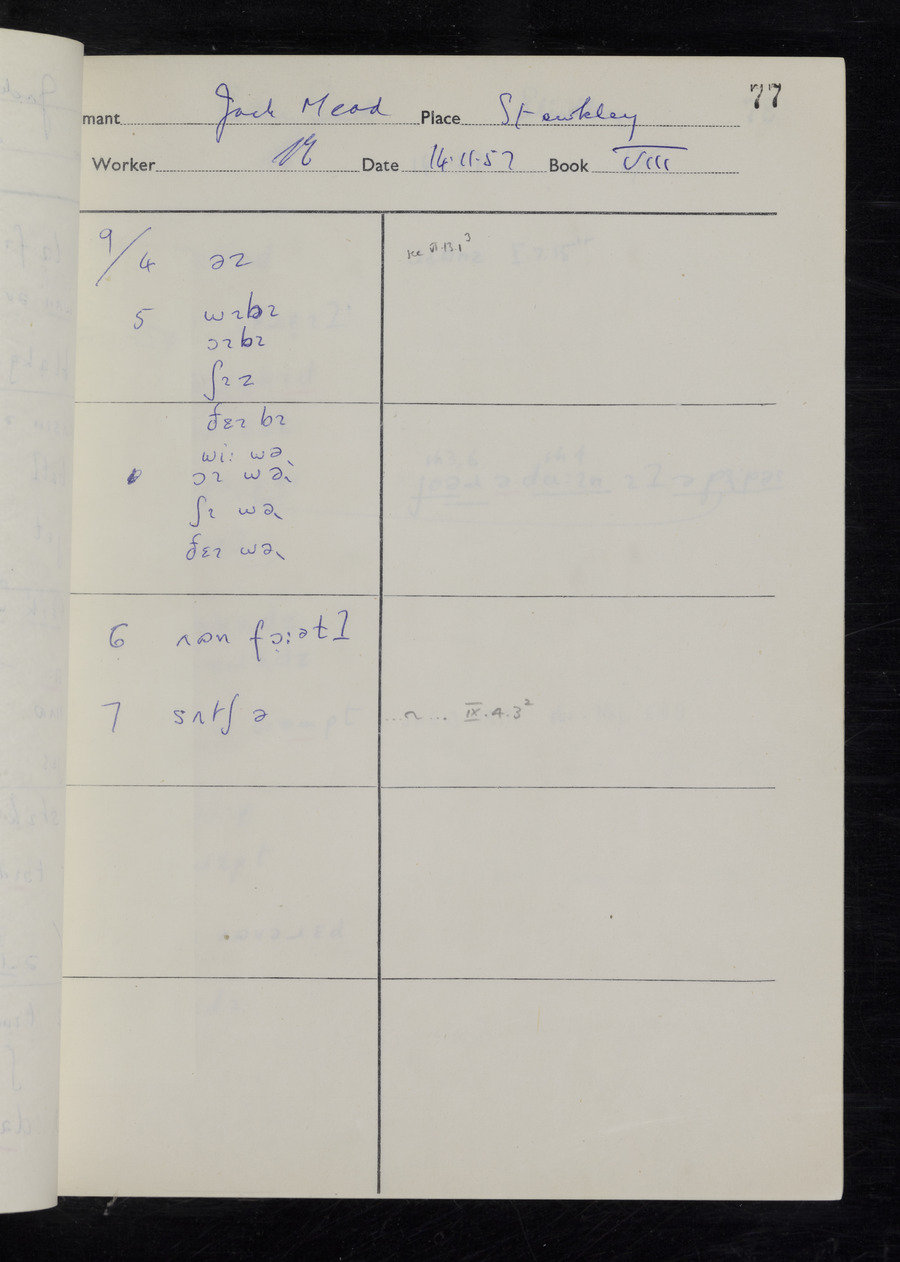 77
mant Jack Mead Place Stewkley
Worker Date 14.11.57 Book VIII
9/4 əz see VI.13.1³
5 wɪbɪ
ɔɪbɪ
ʃɪ z
ðɛɪ bɪ
wi: wə
ɔɪ wə
ʃɪ wə
ðɛɪ wə
6 nən fɔ:ətI
7 sʌtʃ ə ...~... IX.4.3²